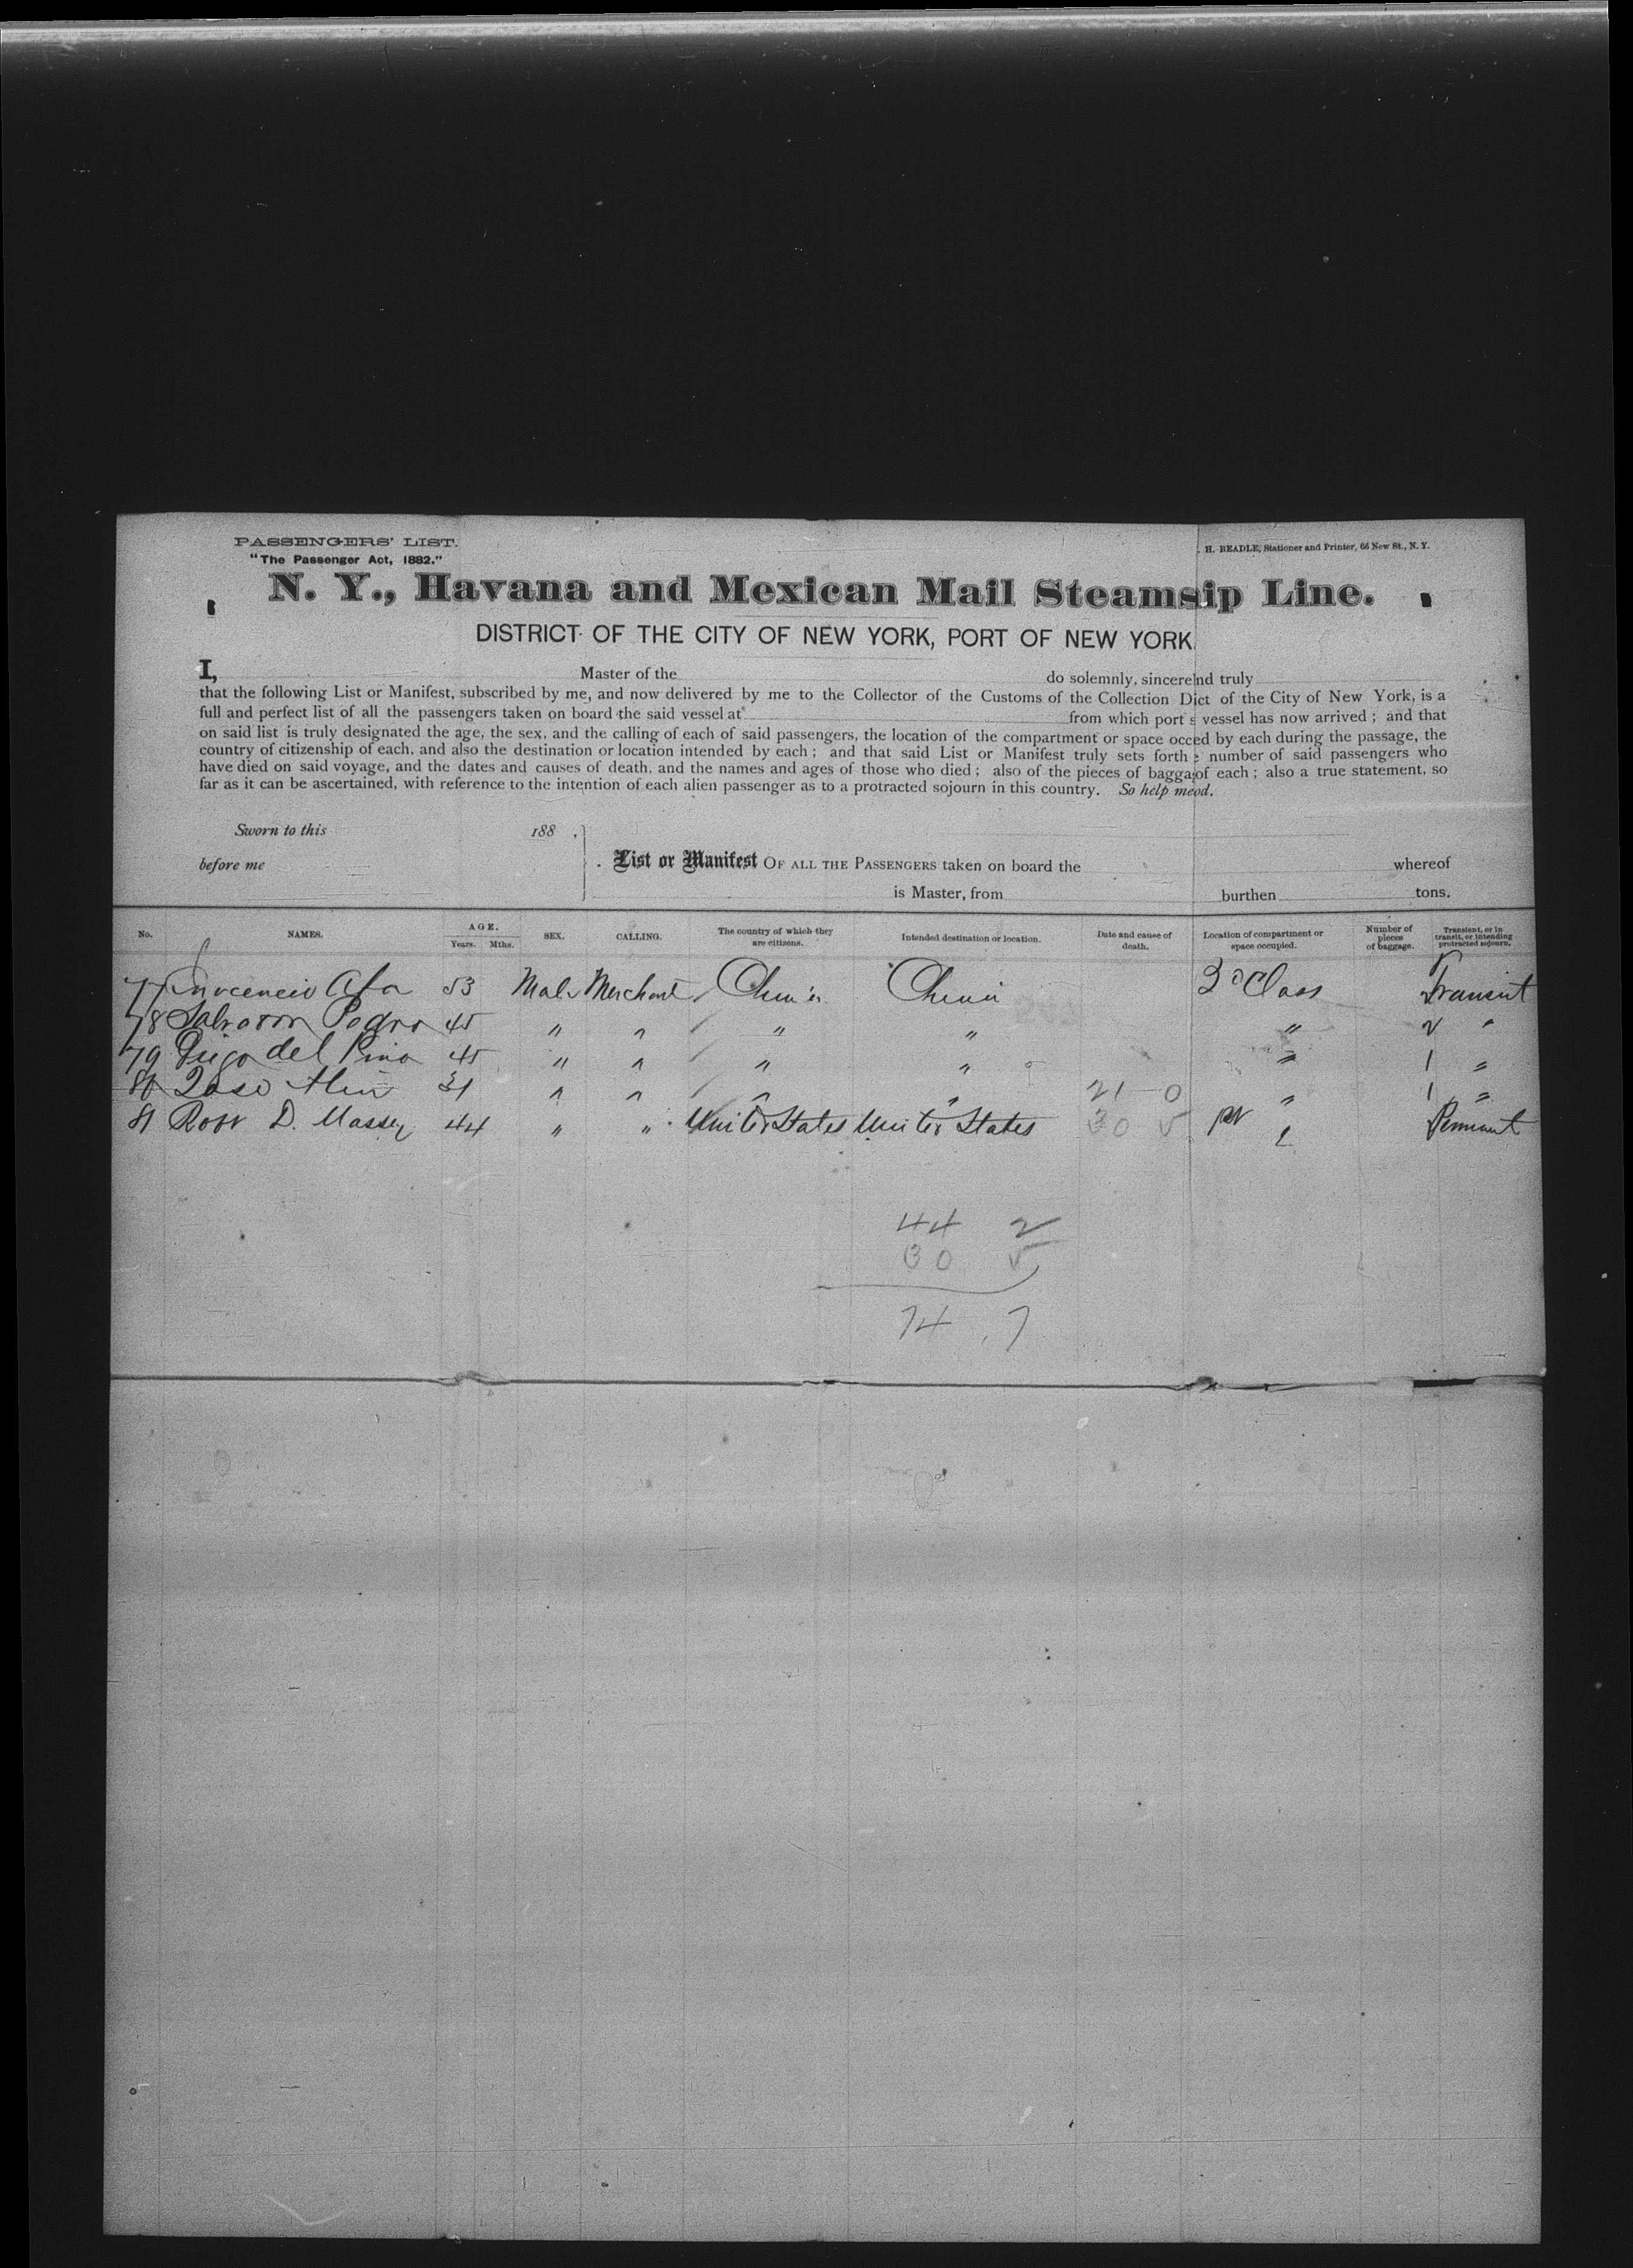 PASSENGERS' LIST.
"The Passenger Act, 1882."
. H. BEADLE, Stationer and Printer, 66 New St., N. Y.
N. Y., Havana and Mexican Mail Steamsip Line.
DISTRICT OF THE CITY OF NEW YORK, PORT OF NEW YORK
I, Master of the do solemnly, sincerend truly
that the following List or Manifest, subscribed by me, and now delivered by me to the Collector of the Customs of the Collection Dict of the City of New York, is a
full and perfect list of all the passengers taken on board the said vessel at from which port s vessel has now arrived ; and that
on said list is truly designated the age, the sex, and the calling of each of said passengers, the location of the compartment or space occed by each during the passage, the
country of citizenship of each, and also the destination or location intended by each ; and that said List or Manifest truly sets forth e number of said passengers who
have died on said voyage, and the dates and causes of death, and the names and ages of those who died ; also of the pieces of baggaof each ; also a true statement, so
far as it can be ascertained, with reference to the intention of each alien passenger as to a protracted sojourn in this country. So help meod.
Sworn to this 188 .
before me
List or Manifest OF ALL THE PASSENGERS taken on board the whereof
is Master, from burthen tons.
No. NAMES. AGE. Years. Mths. SEX. CALLING. The country of which they are citizens. Intended destination or location. Date and cause of death. Location of compartment or space occupied. Number of pieces of baggage. Transient, or in transit, or intending protracted sojourn.
77 53 Male Merchant China China 3d Class Transit
78 Pedro 45 " " " " " 2 "
79 del Pino 45 " " " " " 1 "
80 31 " " " " 21 0 " 1 "
81 Robt D. Massey 44 " " United States United States 30 5
44 2
30 5
74 . 7